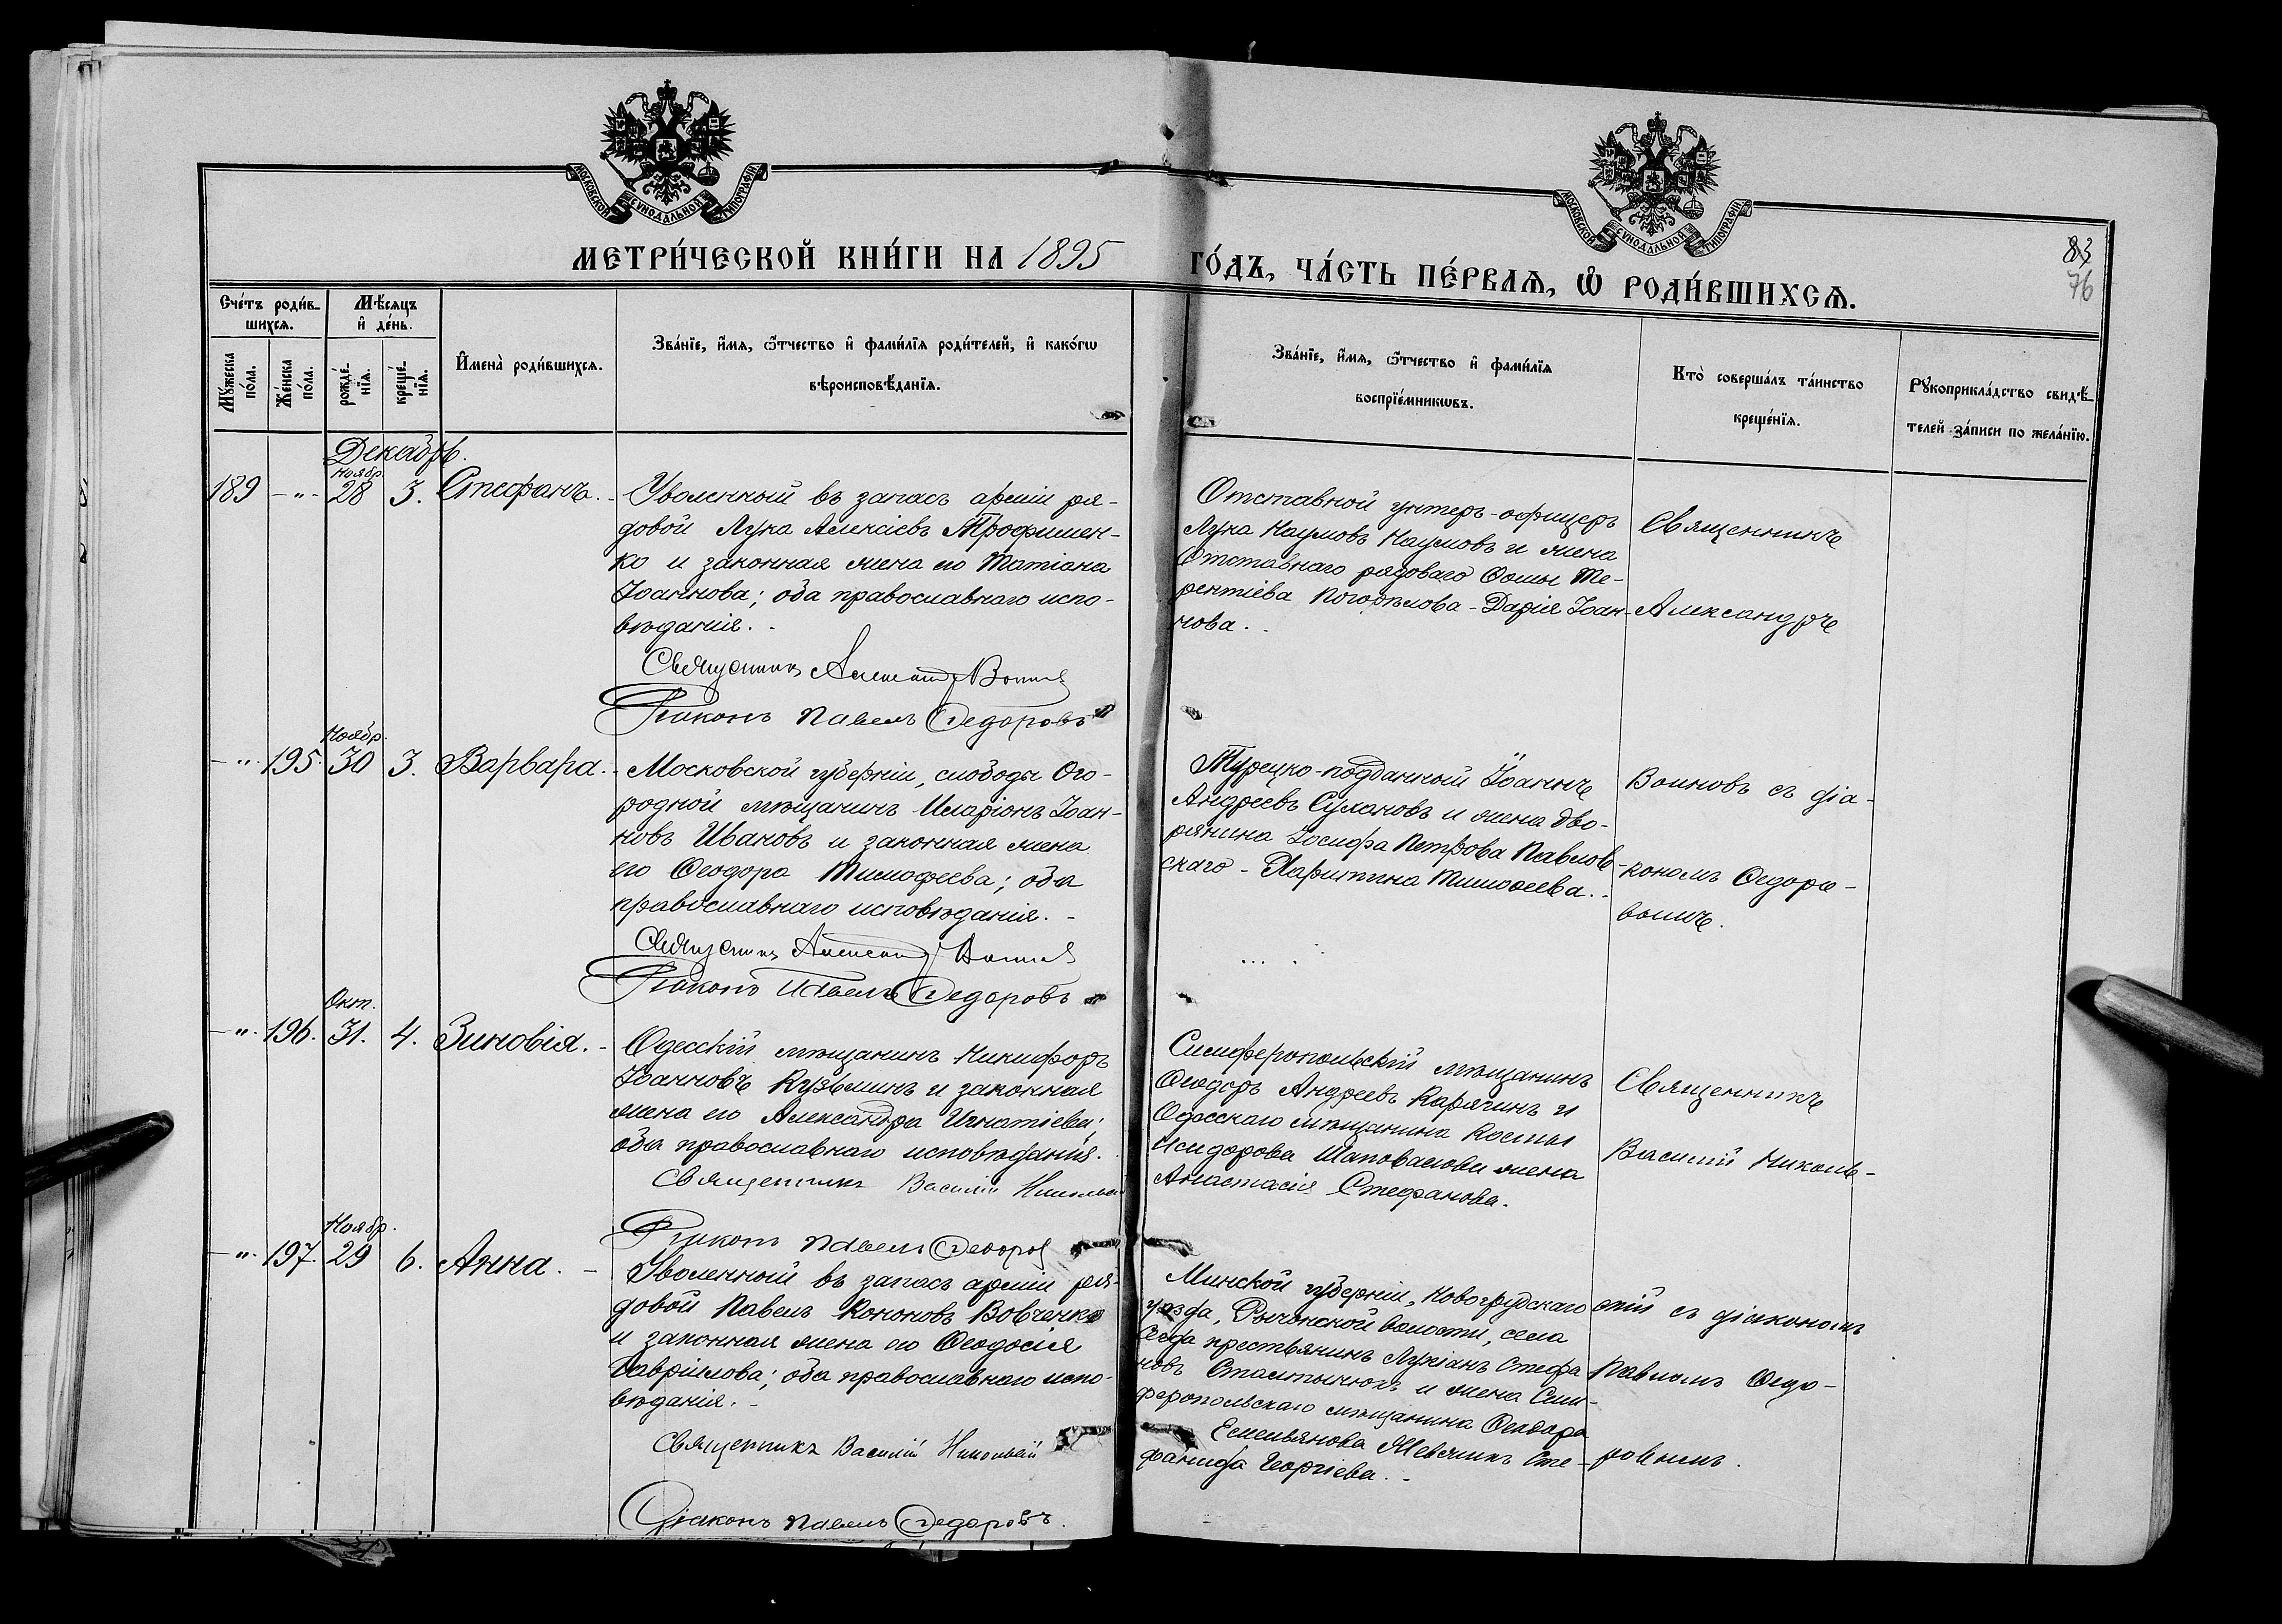 МОСКОВСКОЙ СѴНОДАЛЬНОЙ ТИПОГРАФІИ
МОСКОВСКОЙ СѴНОДАЛЬНОЙ ТИПОГРАФІИ
МЕТРИ́ЧЕСКОЙ КНИ́ГИ НА 1895
ГО́ДЪ, ЧА́СТЬ ПЕ́РВАѦ, Ѡ҆ РОДИ́ВШИХСѦ.
83
76
Сче́тъ роди́в-
шихсѧ.
Мѣ́сѧцъ
и҆ де́нь.
Мꙋ́жеска
по́ла.
Же́нска
по́ла.
рожде́-
нїѧ.
креще́-
нїѧ.
И҆мена̀ роди́вшихсѧ.
Зва́нїе, и҆́мѧ, ѻ҆́тчество и҆ фами́лїѧ роди́телей, и҆ како́гѡ
вѣроисповѣ́данїѧ.
Зва́нїе, и҆́мѧ, ѻ҆́тчество и҆ фами́лїѧ
воспрїе́мникѡвъ.
Кто̀ соверша́лъ та́инство
креще́нїѧ.
Рꙋкоприкла́дство свидѣ́-
телей за́писи по жела́нїю.
Декабрь.
Ноябр.
189 -"- 28 3. Стефанъ.
Уволенный въ запасъ арміи ря-
довой Лука Алексіевъ Трофимен-
ко и законная жена его Татіана
Іоаннова; оба православнаго испо-
вѣданія.
Священникъ Александръ Воиновъ
Діаконъ Павелъ Федоровъ
Отставной унтеръ-офицеръ
Лука Наумовъ Наумовъ и жена
Отставнаго рядоваго Ѳомы Те-
рентіева Погорѣлова - Дарія Іоан-
нова.
Священникъ
Александръ
Ноябр.
-"- 195. 30 3. Варвара.
Московской губерніи, слободы Ого-
родной мѣщанинъ Иларіонъ Іоан-
новъ Ивановъ и законная жена
его Ѳеодора Тимофеева; оба
православнаго исповѣданія.
Священникъ Александръ Воиновъ
Діаконъ Павелъ Федоровъ
Турецко-подданный Іоаннъ
Андреевъ Сулановъ и жена дво-
рянина Іосифа Петрова Павлов-
скаго - Харитина Тимоѳеева.
Воиновъ съ діа-
кономъ Ѳедоро-
вымъ.
Окт.
-"- 196. 31. 4. Зиновія.
Одесскій мѣщанинъ Никифоръ
Іоанновъ Кузьминъ и законная
жена его Александра Игнатіева;
оба православнаго исповѣданія.
Священникъ Василій Никольскій
Діаконъ Павелъ Федоровъ
Симферопольскій мѣщанинъ
Ѳеодоръ Андреевъ Карягинъ и
Одесскаго мѣщанина Космы
Исидорова Шаповалова жена
Анастасія Стефанова.
Священникъ
Василій Николь-
Ноябр.
-"- 197. 29 6. Анна.
Уволенный въ запасъ арміи ря-
довой Павелъ Кононовъ Вовченко
и законная жена его Ѳеодосія
Гавріилова; оба православнаго испо-
вѣданія.
Священникъ Василій Никольскій
Діаконъ Павелъ Федоровъ.
Минской губерніи, Новогрудскаго
уѣзда, волости, села
крестьянинъ Лукіанъ Стефа
новъ и жена Сим-
феропольскаго мѣщанина Ѳеодора
Емельянова Сте-
фанида Георгіева.
скій съ діакономъ
Павломъ Ѳедо-
ровымъ.